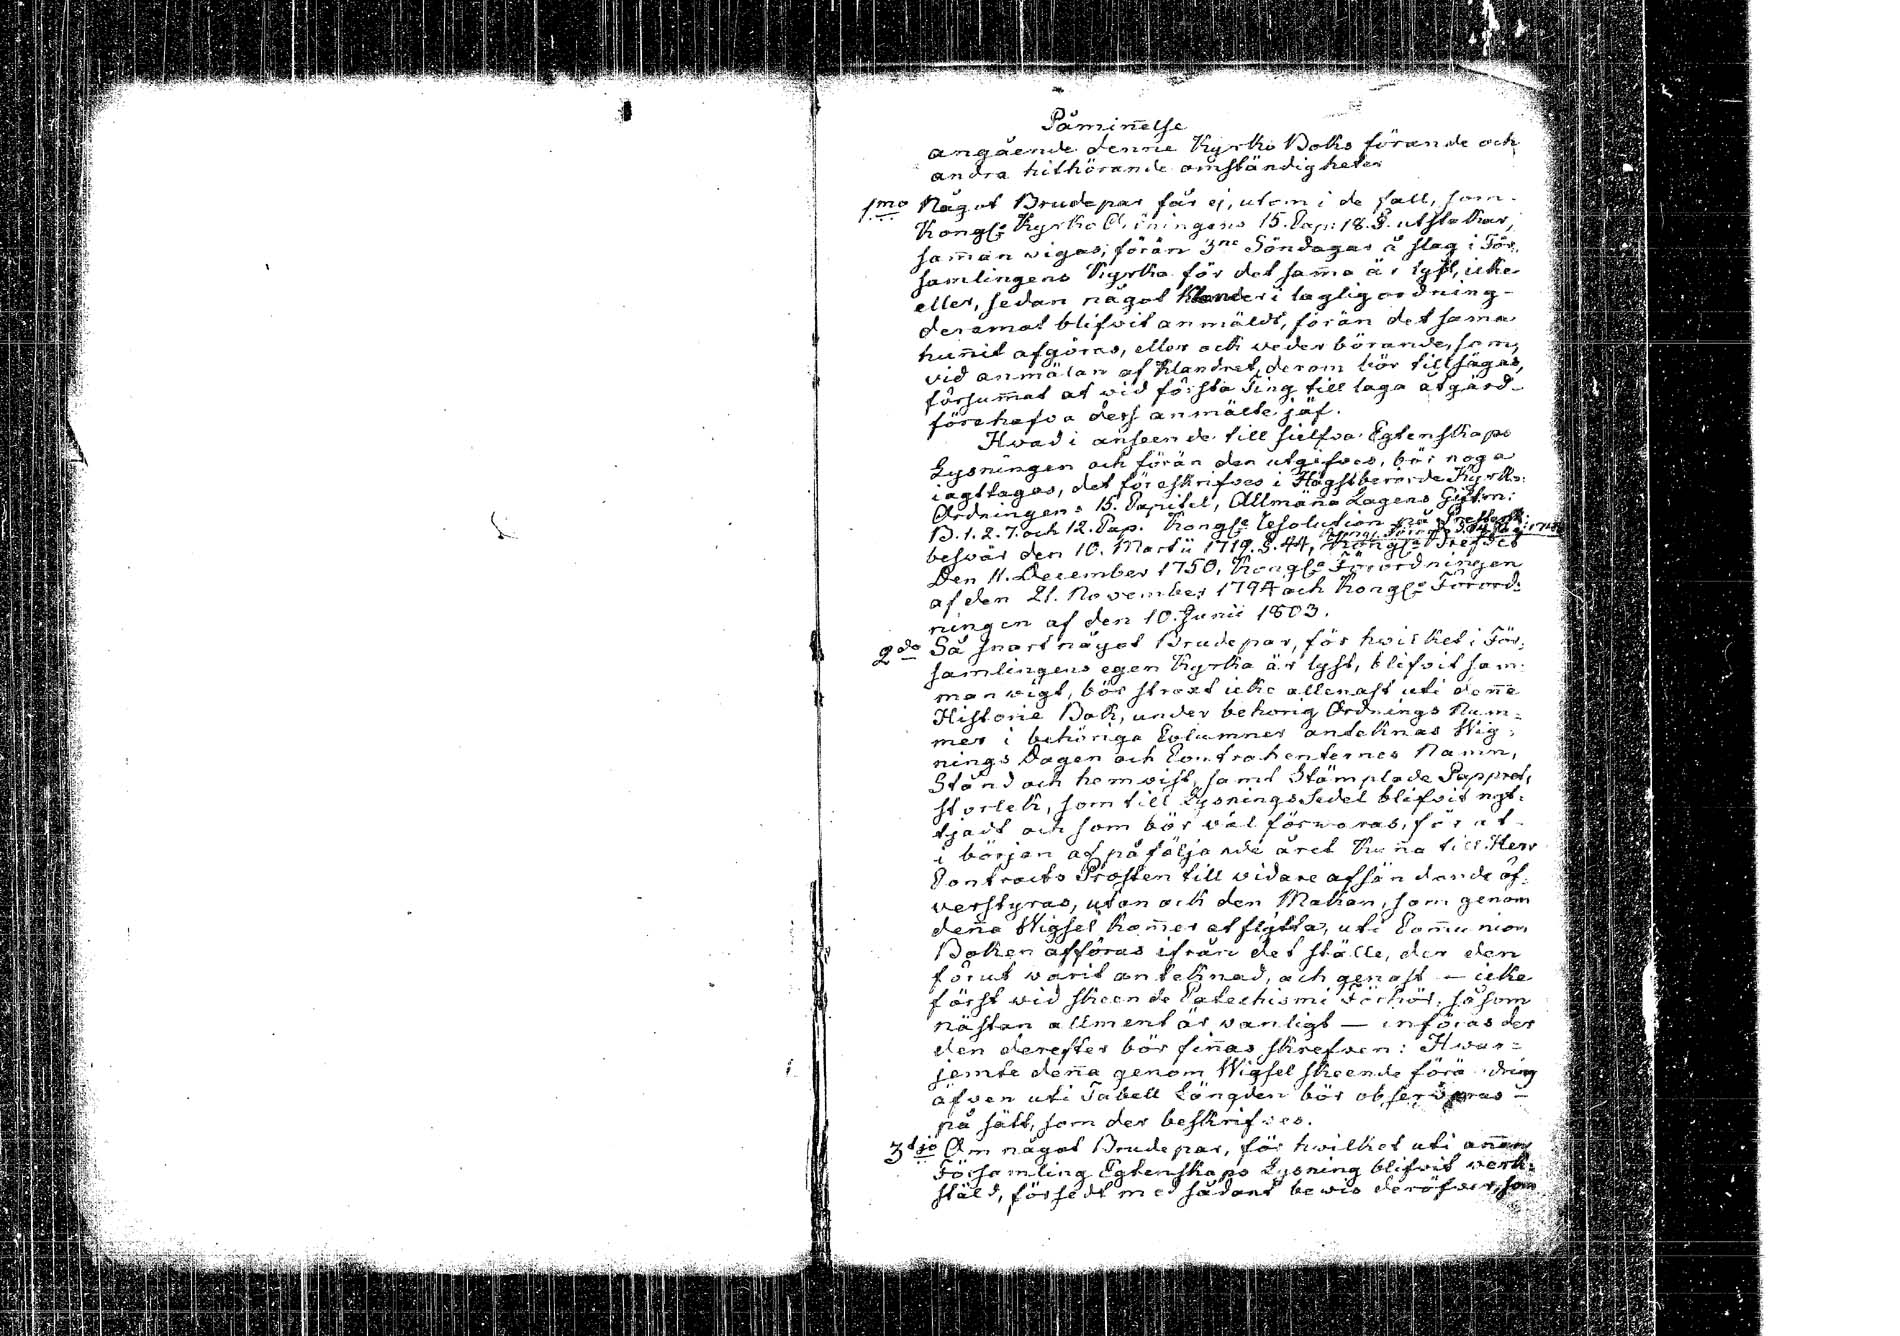 Påmiñelse
angående denne Kyrko Boks förande och
andra hithörande omständigheter
1mo Något Brudepar får ej, utom i de fall, som
Kongl: Kyrko Ordningens 15. Cap: 18. §. utstakar,
samman vigas, förän 3ne Söndagar å slag i För-
samlingens Kyrka för det sam̄a är lyst, icke
eller, sedan något Klander i laglig ordning
deremot blifvit anmäldt, förän det sama
hun̄it afgöras, eller ock vederbörande, som,
vid anmälan af Klandret, derom bör tillsägas,
försum̄at at vid första Ting till laga åtgärd
förehafva dess anmälte jäf.
Hvad i anseende till sielfva Egtenskaps
Lysningen och förän den utgifves, bör noga
iagttagas, det föreskrifves i Högstberörde Kyrko
Ordningens 15. Capitel, Allmäña Lagens Giftm:
B. 1. 2. 7. och 12. Cap. Kongl: Resolution på Presterk:
besvär den 10. Martii 1719. §. 44, Kongl: Brefvet
Den 11. December 1750, Kongl: Förordningen
af den 21. November 1794 och Kongl: Förord-
ningen af den 10. Junii 1803.
2do Så snart något Brudepar, för hwilket i För-
samlingens egen Kyrka är lyst, blifvit sam-
man wigt, bör straxt icke allenast uti deñe
Historie Bok, under behörig Ordnings Num-
mer i behöriga Columner anteknas Wig-
nings Dagen och Contrahenternes Namn,
Stånd och hemvist, samt Stämplade Pappret,
storlek, som till Lysnings Sedel blifvit nyt-
tjadt och som bör väl förwaras, för at
i början af påföljande året kuña till Herr
Contracts Prosten till vidare afsändande öf-
verstyras, utan ock den Makan, som genom
deña Wigsel kom̄er at flytta, uti Com̄union
Boken afföras ifrån det ställe, der den
förut warit anteknad, och genast — icke
först wid skeende Catechismi Förhör, såsom
nästan allment är vanligt — införas der
den derefter bör fiñas skrefven: Hwar-
jemte deña genom Wigsel skeende förändring
äfven uti Tabell Längden bör observeras
på sätt, som der beskrifves.
3tjo Om något Brudepar, för hwilket uti añan
Församling Egtenskaps Lysning blifvit verk-
stäld, försedt med sådant bewis deröfver, som